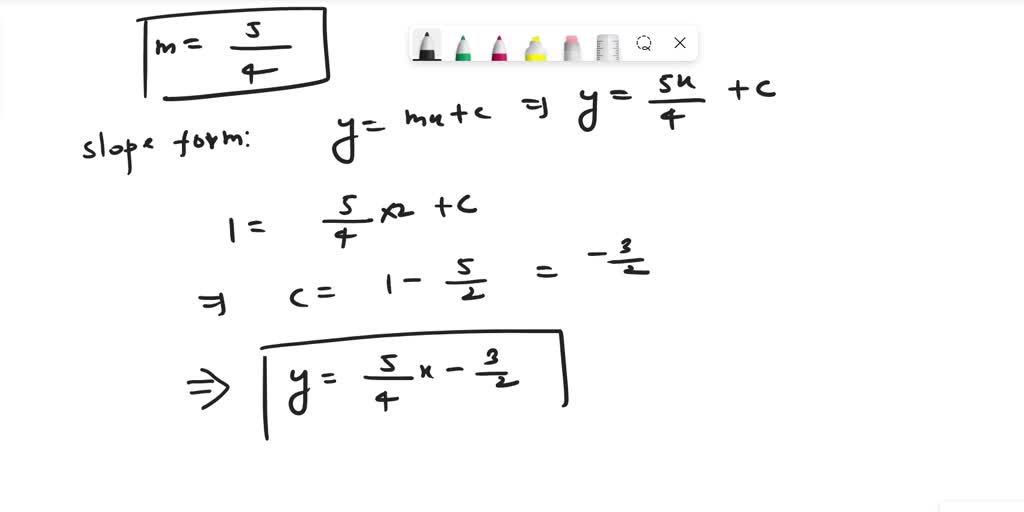 m = 5/4
slope form: y = mx + c ⇒ y = 5x/4 + c
1 = 5/4 × 2 + c
⇒ c = 1 - 5/2 = -3/2
⇒ y = 5/4 x - 3/2